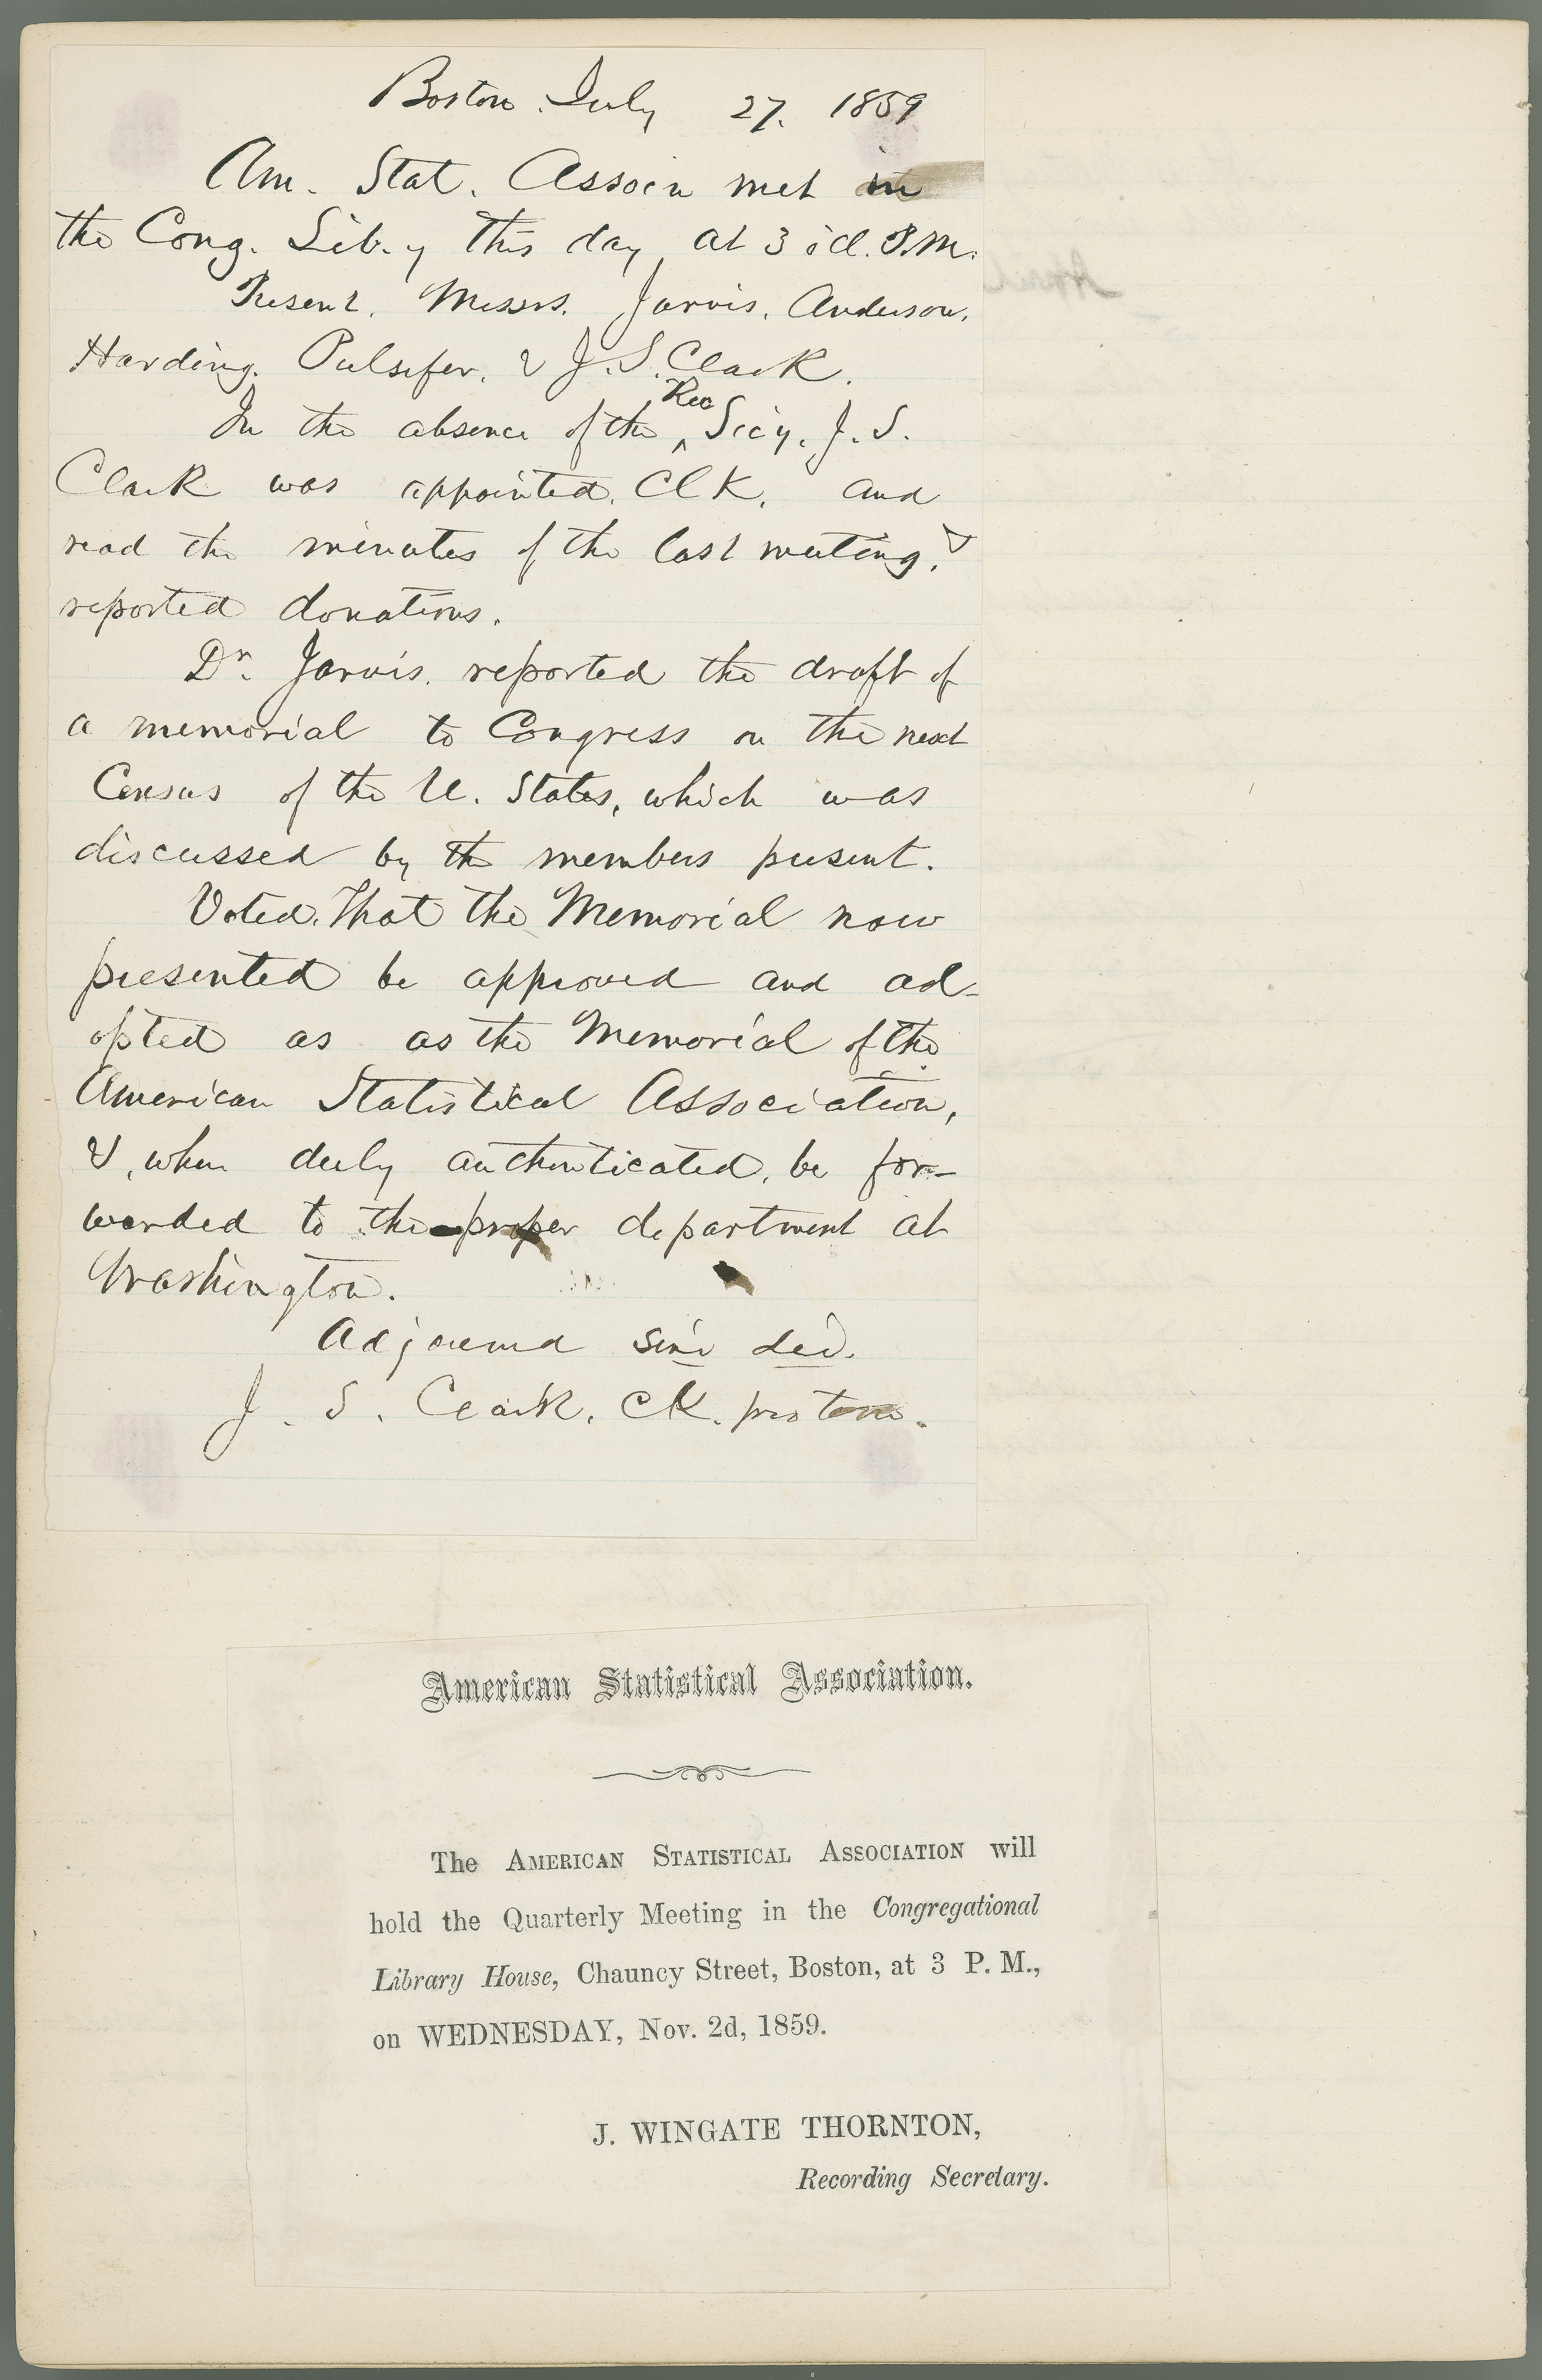 Boston July 27. 1859
Am. Stat. Associn met in
the Cong. Lib.y this day, at 3 o'cl. P.M.
Present. Messrs. Jarvis, Anderson,
Harding, Pulsifer, & J. S. Clark.
Rec
In the absence of the ^ Sec'y, J. S.
Clark was appointed Clk. and
read the minutes of the last meeting, &
reported donations.
Dr. Jarvis. reported the draft of
a memorial to Congress on the next
Census of the U. States, which was
discussed by the members present.
Voted. That the Memorial now
presented be approved and ad-
opted as as the Memorial of the
American Statistical Association,
&, when duly authenticated, be for-
warded to the proper department at
Washington.
Adjournd sine die.
J. S. Clark, Ck. pro tem.
American Statistical Association.
The AMERICAN STATISTICAL ASSOCIATION will
hold the Quarterly Meeting in the Congregational
Library House, Chauncy Street, Boston, at 3 P. M.,
on WEDNESDAY, Nov. 2d, 1859.
J. WINGATE THORNTON,
Recording Secretary.